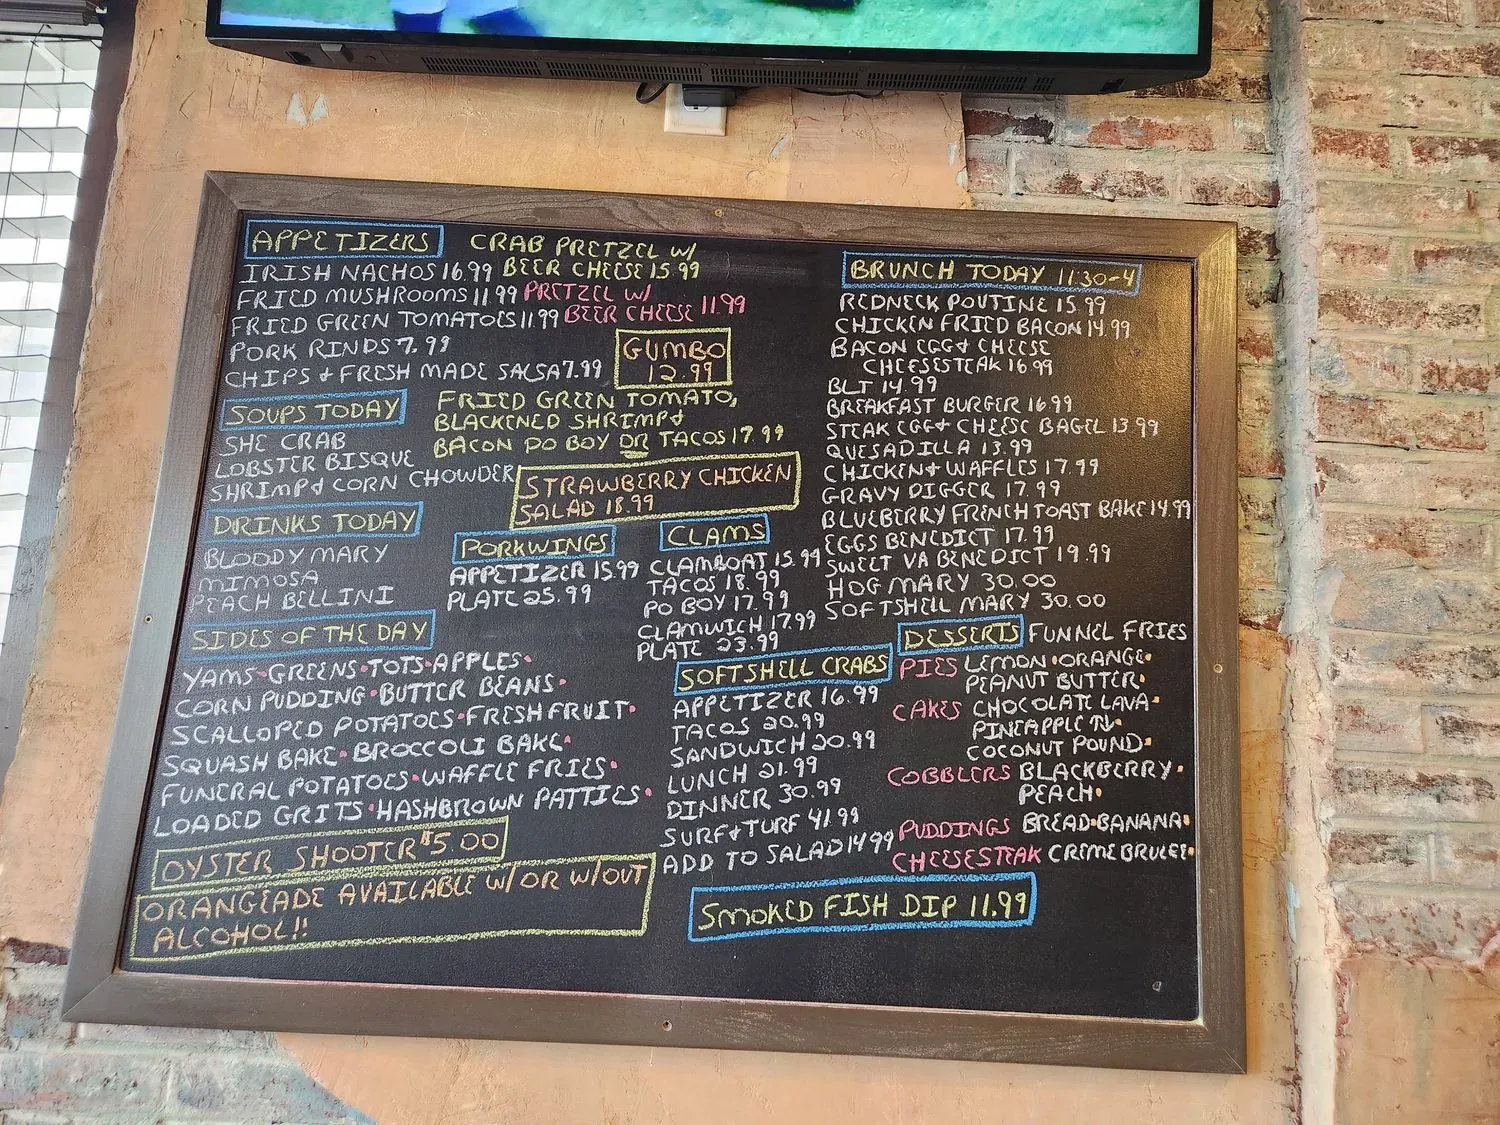 APPETIZERS
IRISH NACHOS 16.99
FRIED MUSHROOMS 11.99
FRIED GREEN TOMATOES 11.99
PORK RINDS 7.99
CHIPS & FRESH MADE SALSA 7.99
CRAB PRETZEL W/
BEER CHEESE 15.99
PRETZEL W/
BEER CHEESE 11.99
GUMBO
12.99
SOUPS TODAY
SHE CRAB
LOBSTER BISQUE
SHRIMP & CORN CHOWDER
FRIED GREEN TOMATO,
BLACKENED SHRIMP &
BACON PO BOY OR TACOS 17.99
STRAWBERRY CHICKEN
SALAD 18.99
DRINKS TODAY
BLOODY MARY
MIMOSA
PEACH BELLINI
PORKWINGS
APPETIZER 15.99
PLATE 25.99
CLAMS
CLAMBOAT 15.99
TACOS 18.99
PO BOY 17.99
CLAMWICH 17.99
PLATE 23.99
SIDES OF THE DAY
YAMS • GREENS • TOTS • APPLES •
CORN PUDDING • BUTTER BEANS •
SCALLOPED POTATOES • FRESH FRUIT •
SQUASH BAKE • BROCCOLI BAKE •
FUNERAL POTATOES • WAFFLE FRIES •
LOADED GRITS • HASHBROWN PATTIES •
OYSTER SHOOTER $5.00
ORANGEADE AVAILABLE W/ OR W/OUT
ALCOHOL!!
SOFTSHELL CRABS
APPETIZER 16.99
TACOS 20.99
SANDWICH 20.99
LUNCH 21.99
DINNER 30.99
SURF & TURF 41.99
ADD TO SALAD 14.99
SMOKED FISH DIP 11.99
BRUNCH TODAY 11:30-4
REDNECK POUTINE 15.99
CHICKEN FRIED BACON 14.99
BACON EGG & CHEESE
CHEESESTEAK 16.99
BLT 14.99
BREAKFAST BURGER 16.99
STEAK EGG & CHEESE BAGEL 13.99
QUESADILLA 13.99
CHICKEN & WAFFLES 17.99
GRAVY DIGGER 17.99
BLUEBERRY FRENCH TOAST BAKE 14.99
EGGS BENEDICT 17.99
SWEET VA BENEDICT 19.99
HOG MARY 30.00
SOFTSHELL MARY 30.00
DESSERTS FUNNEL FRIES
PIES LEMON • ORANGE •
PEANUT BUTTER •
CAKES CHOCOLATE LAVA •
PINEAPPLE
COCONUT POUND •
COBBLERS BLACKBERRY •
PEACH •
PUDDINGS BREAD • BANANA •
CHEESESTEAK CREME BRULEE •